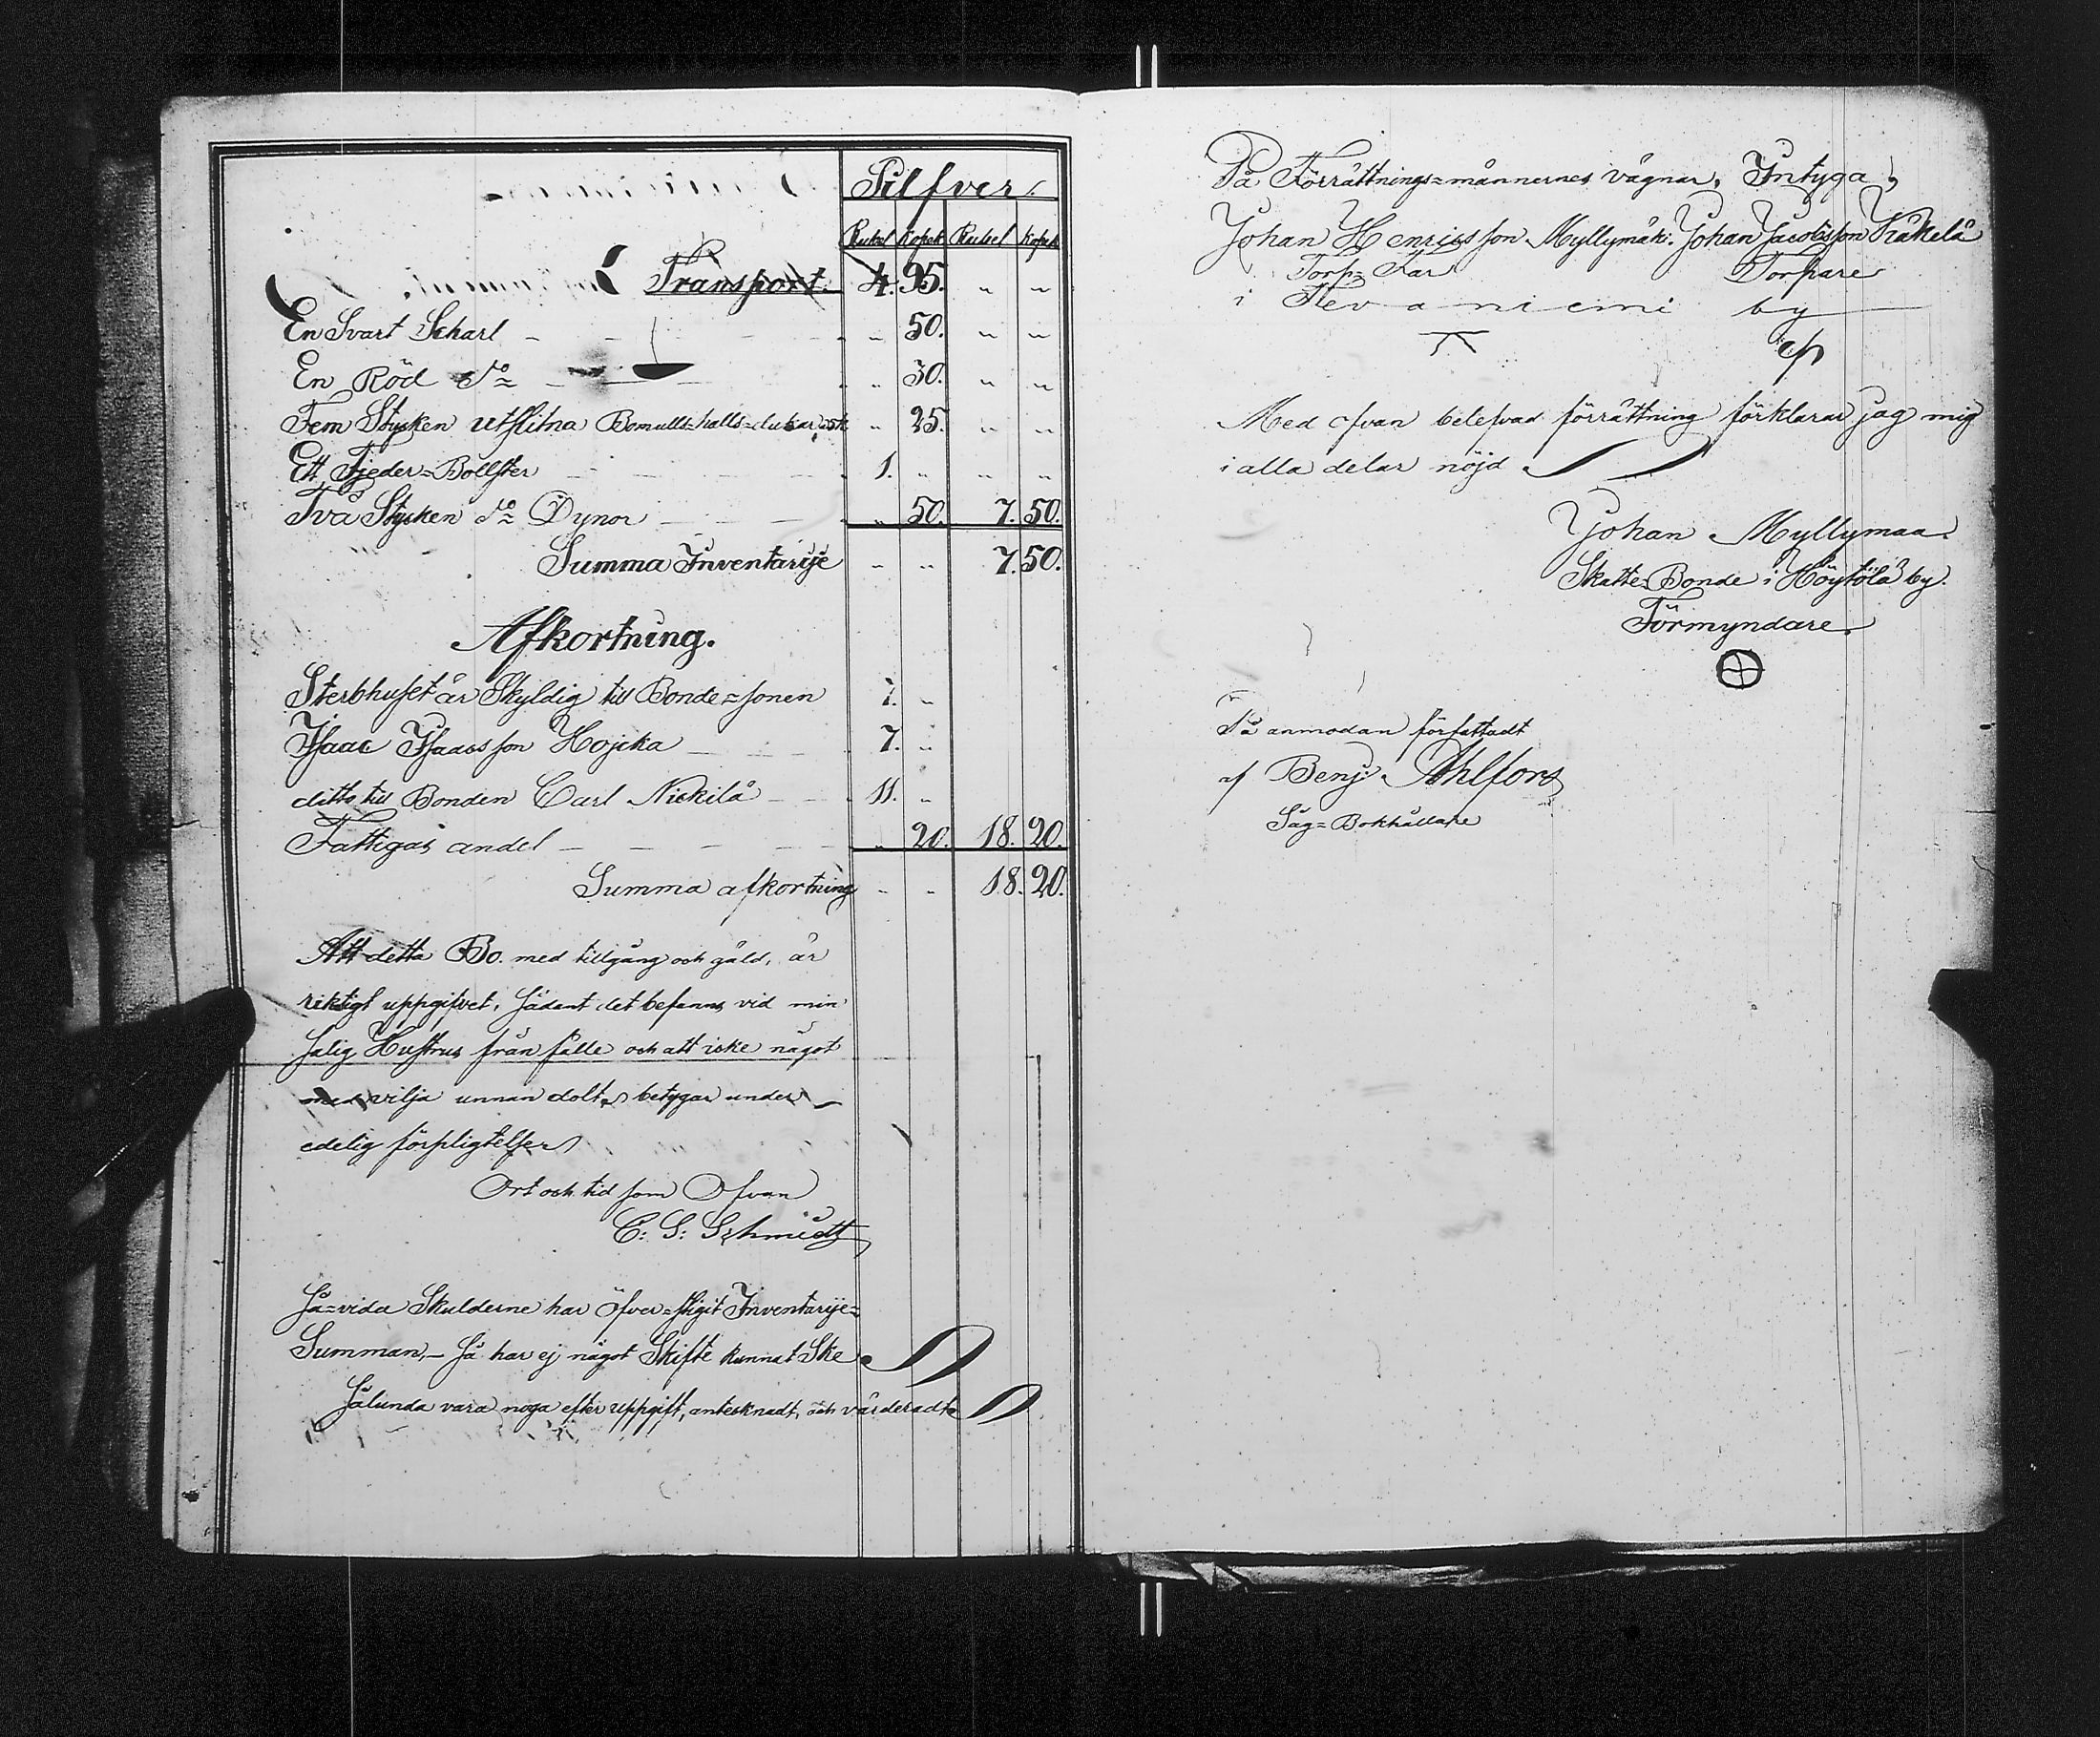 Silfver
Rubel Kopek Rubel Kopek
Transport. 4. 95. " "
En Svart Scharl " 50. " "
En Röd do " 30. " "
Fem Stycken utslitna Bomulls=halls=dukar " 25. " "
Ett Fjeder=Bollster 1. " " "
Två Stycken do Dynor " 50. 7. 50.
Summa Inventarije " " 7. 50.
Afkortning.
Sterbhuset är Skyldig till Bonde=sonen 7. "
Isaac Isaacsson Hojcka 7. "
ditto till Bonden Carl Nickilä 11. "
Fattigas andel " 20. 18. 20.
Summa afkortning " " 18. 20.
Att detta Bo. med tillgång och gäld, är
riktigt uppgifvet, sådant det befanns vid min
salig Hustrus från fälle och att icke något
med vilja unnan dolts betygar under
edelig förpligtelse
Ort och tid som Ofvan
C: S: Schmidt
Så=vida Skulderne har Öfver=stigit Inventarije=
Summan,– så har ej något Skifte kunnat Ske.
Sålunda vara noga efter uppgift, antecknadt, och värderadt.
På Förrättnings=männernes vägnar, Intyga,
Johan Henricsson Myllymäki. Johan Jacobsson Käkelä
Torp=Far Torpare
i Tervaniemi by
Med ofvan belefvad förrättning förklarar jag mig
i alla delar nöjd
Johan Myllymaa
Skatte Bonde i Höytölä by.
Förmyndare.
På anmodan författadt
af Benj. Ahlfors
Såg=Bokhållare